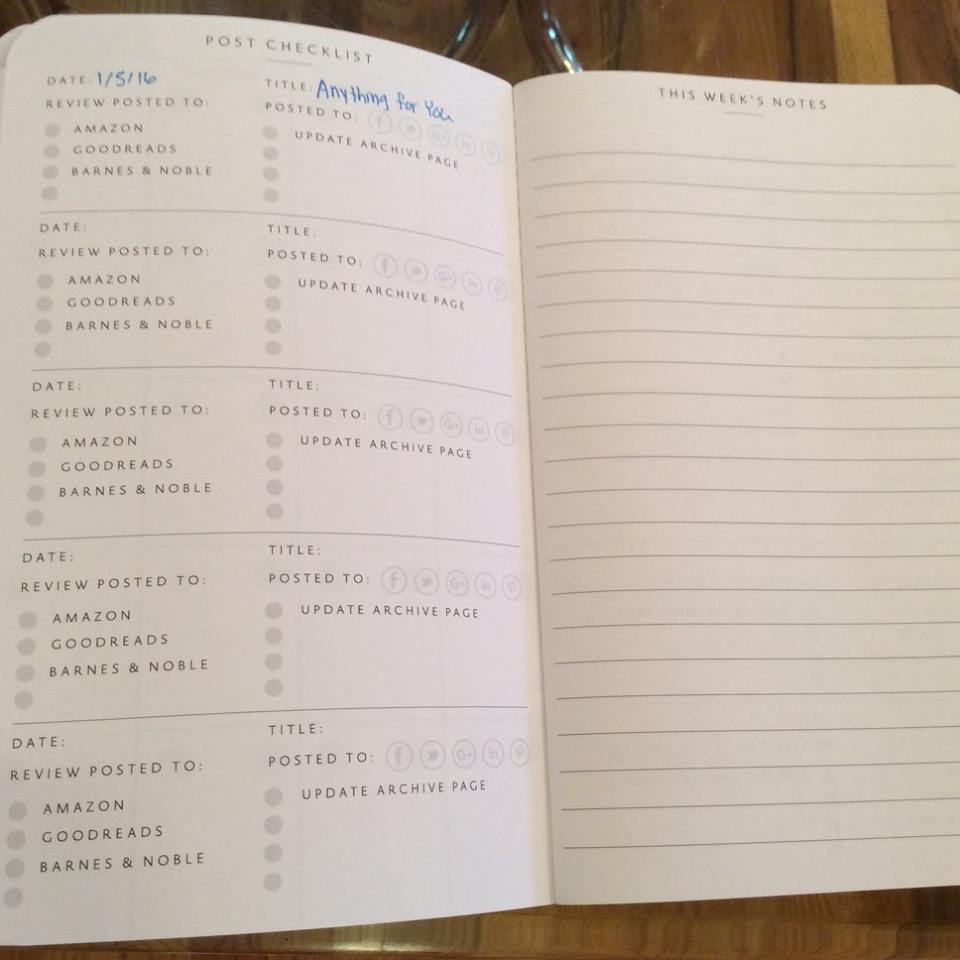 POST CHECKLIST
DATE: 1/5/16 TITLE: Anything for You
REVIEW POSTED TO: POSTED TO: f G+ in
AMAZON UPDATE ARCHIVE PAGE
GOODREADS
BARNES & NOBLE
DATE: TITLE:
REVIEW POSTED TO: POSTED TO: f G+ in
AMAZON UPDATE ARCHIVE PAGE
GOODREADS
BARNES & NOBLE
DATE: TITLE:
REVIEW POSTED TO: POSTED TO: f G+ in
AMAZON UPDATE ARCHIVE PAGE
GOODREADS
BARNES & NOBLE
DATE: TITLE:
REVIEW POSTED TO: POSTED TO: f G+ in
AMAZON UPDATE ARCHIVE PAGE
GOODREADS
BARNES & NOBLE
DATE: TITLE:
REVIEW POSTED TO: POSTED TO: f G+ in
AMAZON UPDATE ARCHIVE PAGE
GOODREADS
BARNES & NOBLE
THIS WEEK'S NOTES